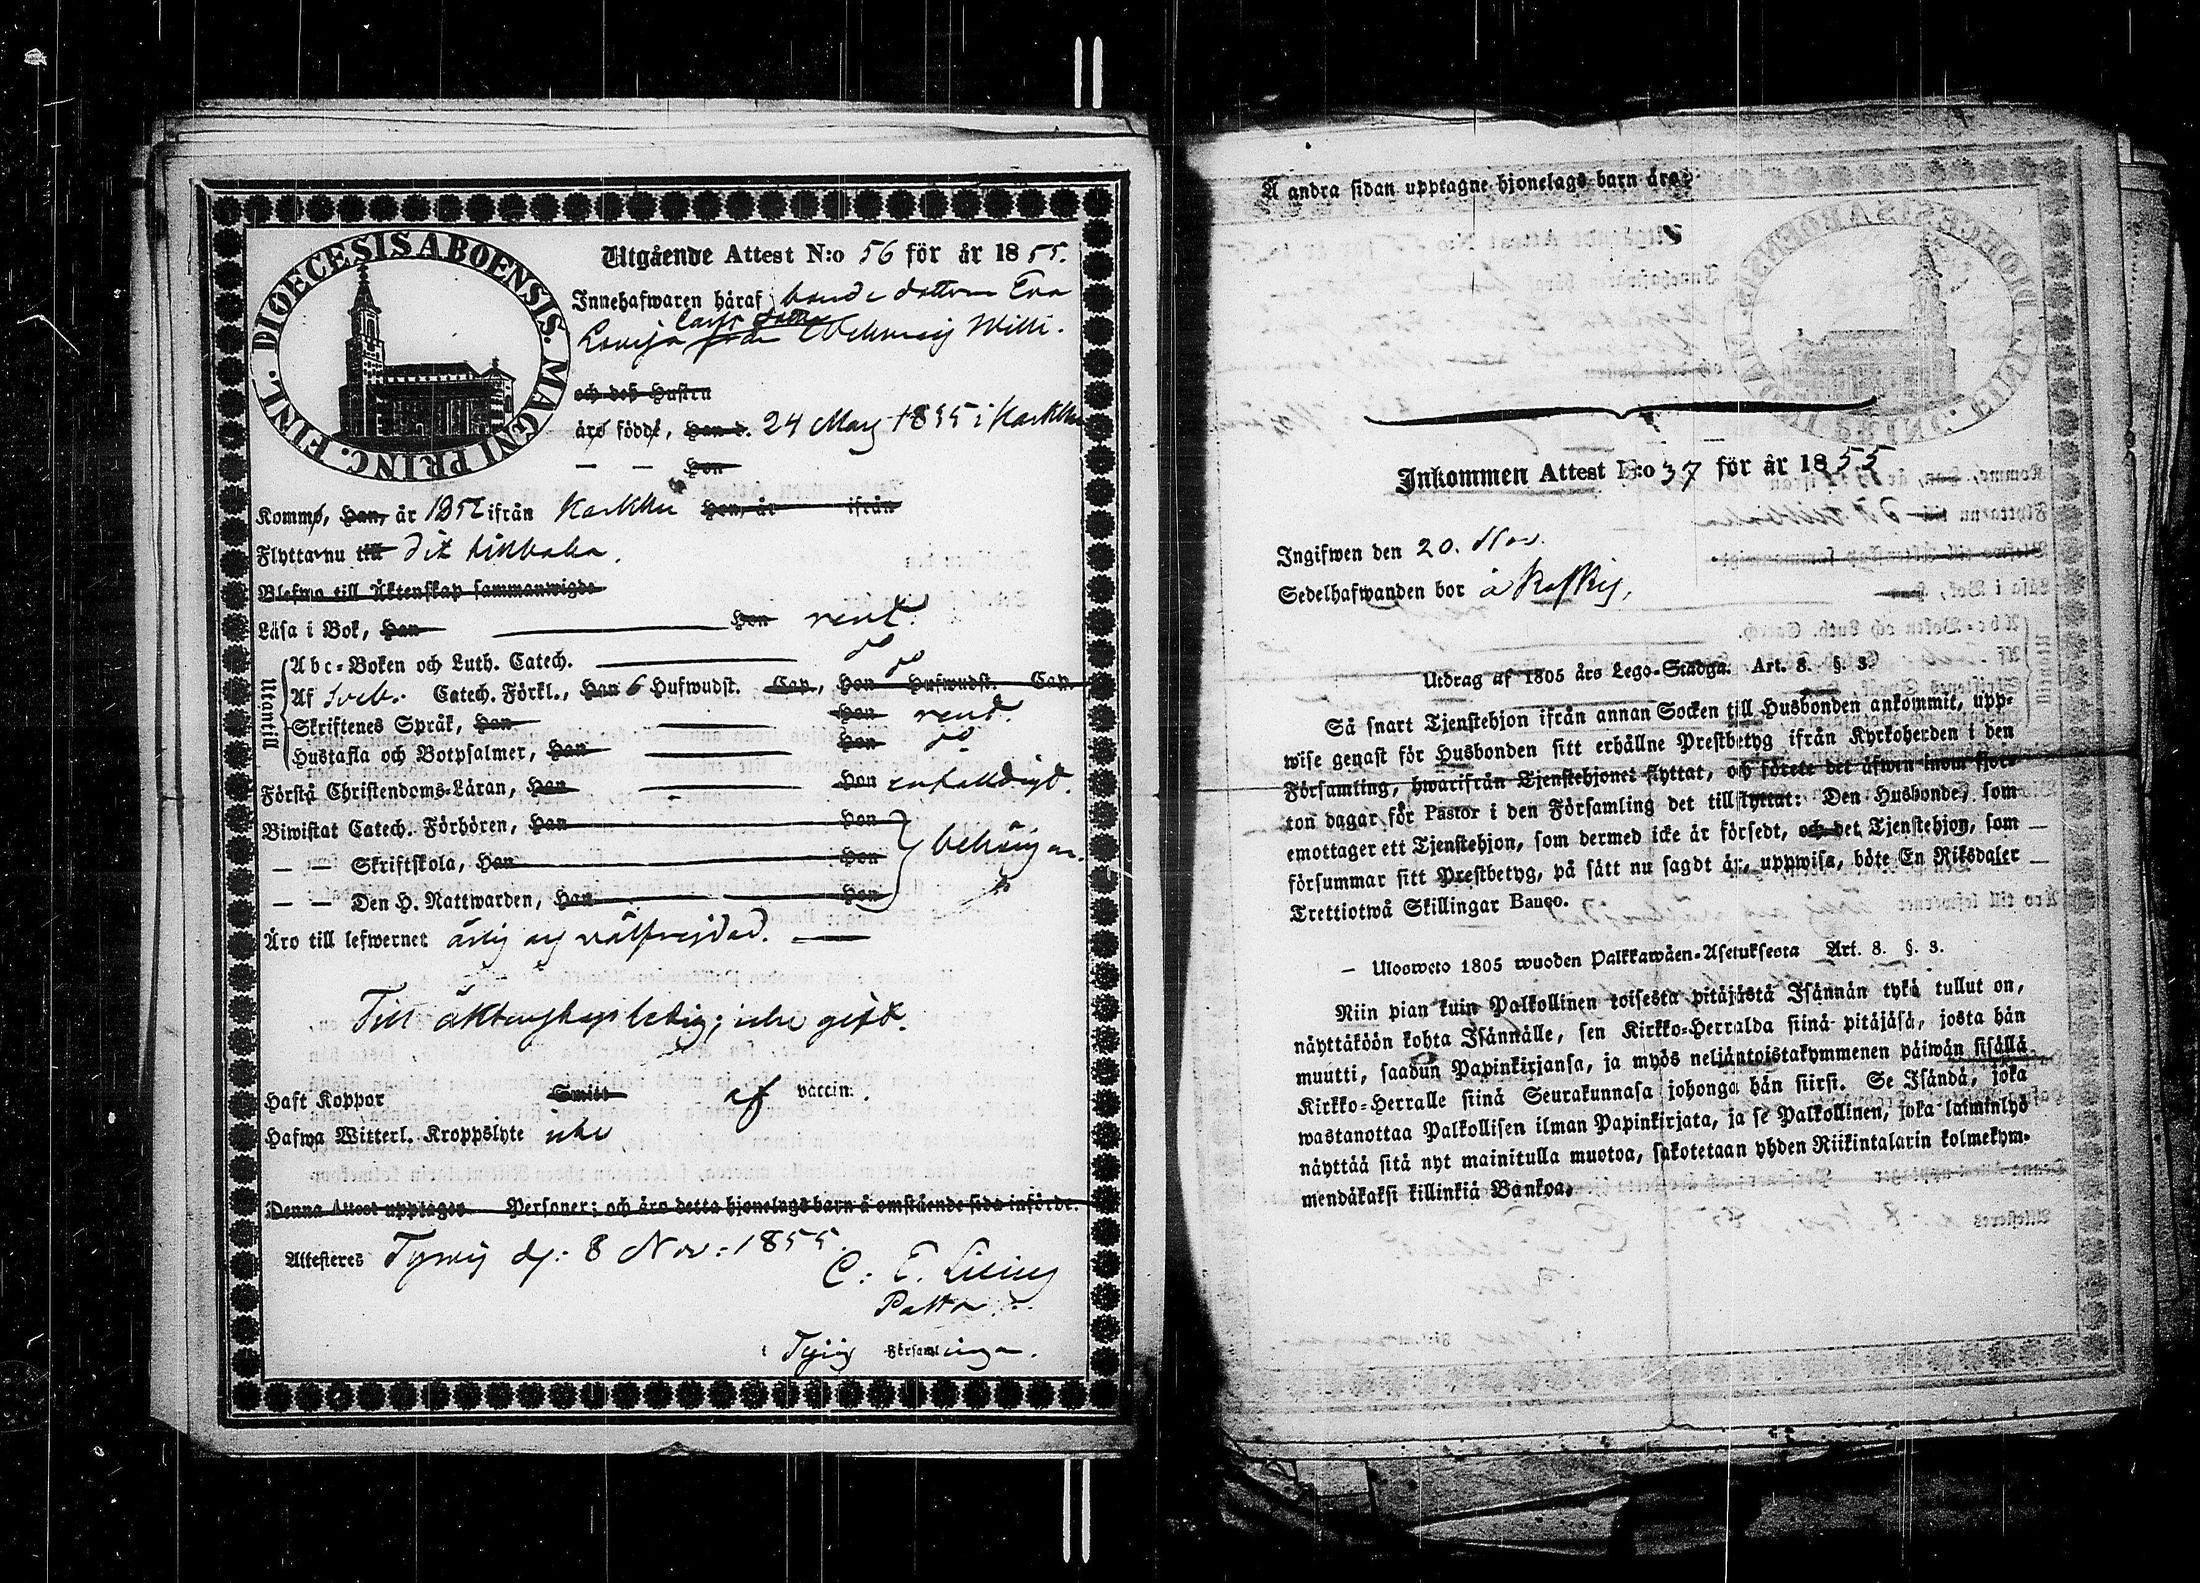 DIOECESIS ABOENSIS. MAGNI PRINC. FINL.
Utgående Attest N:o 56 för år 1855.
Innehafwaren håraf bonde dottern Eva
Lovisa Carls dotter Willi.
och deß Hustru
äro född, Han d. 24 Mars 1835 i Karkku
— — Hon
Komm, Han, år 1852 ifrån Karkku Hon, år ifrån
Flytta nu till dit tillbaka.
Blefwo till Äktenskap sammanwigde
Läsa i Bok, Han Hon rent.
Utantill
Abc-Boken och Luth. Catech. do
Af Sveb. Catech. Förkl., Han 6 Hufwudst. Cap., Hon Hufwudst. Cap. do
Skriftenes Språk, Han Hon rent.
Hustafla och Botpsalmer, Han Hon do
Förstå Christendoms-Läran, Han Hon enfaldigt.
Biwistat Catech. Förhören, Han Hon
— — Skriftskola, Han Hon behörigen.
— — Den H. Nattwarden, Han Hon
Äro till lefwernet ärlig och välfrejdad.
Till äktenskap ledig; icke gift.
Haft Koppor Smitt af vaccin.
Hafwa Witterl. Kroppslyte icke
Denna Attest upptager Personer; och äro detta hjonelags barn å omstående sida införde.
Attesteres Tyrvis d: 8 Nov: 1855.
C: E. Lilius
Pastor
i Tyrvis Församlingar.
Å andra sidan upptagne hjonelags barn äro:
Inkommen Attest N:o 37 för år 1855
Ingifwen den 20. Nov.
Sedelhafwanden bor å
Utdrag af 1805 års Lego-Stadga. Art. 8. §. 3.
Så snart Tjenstehjon ifrån annan Socken till Husbonden ankommit, upp-
wise genast för Husbonden sitt erhållne Prestbetyg ifrån Kyrkoherden i den
Församling, hwarifrån Tjenstehjonet flyttat, och förete det äfwen inom fjor-
ton dagar för Pastor i den Församling det till flyttat: Den Husbonde, som
emottager ett Tjenstehjon, som dermed icke är försedt, och det Tjenstehjon, som
försummar sitt Prestbetyg, på sätt nu sagdt är, uppwisa, böte En Riksdaler
Trettiotwå Skillingar Banco.
— Ulosweto 1805 wuoden Palkkawäen-Asetuksesta Art. 8. §. 3.
Niin pian kuin Palkollinen toisesta pitäjästä Isännän tykö tullut on,
näyttäköön kohta Isännälle, sen Kirkko-Herralda siinä pitäjäsä, josta hän
muutti, saadun Papinkirjansa, ja myös neljäntoistakymmenen päiwän sisällä
Kirkko-Herralle siinä Seurakunnasa johonga hän siirsi. Se Isändä, joka
wastanottaa Palkollisen ilman Papinkirjata, ja se Palkollinen, joka laiminlyö
näyttää sitä nyt mainitulla muotoa, sakotetaan yhden Riikintalarin kolmekym-
mendäkaksi killinkiä Bankoa.